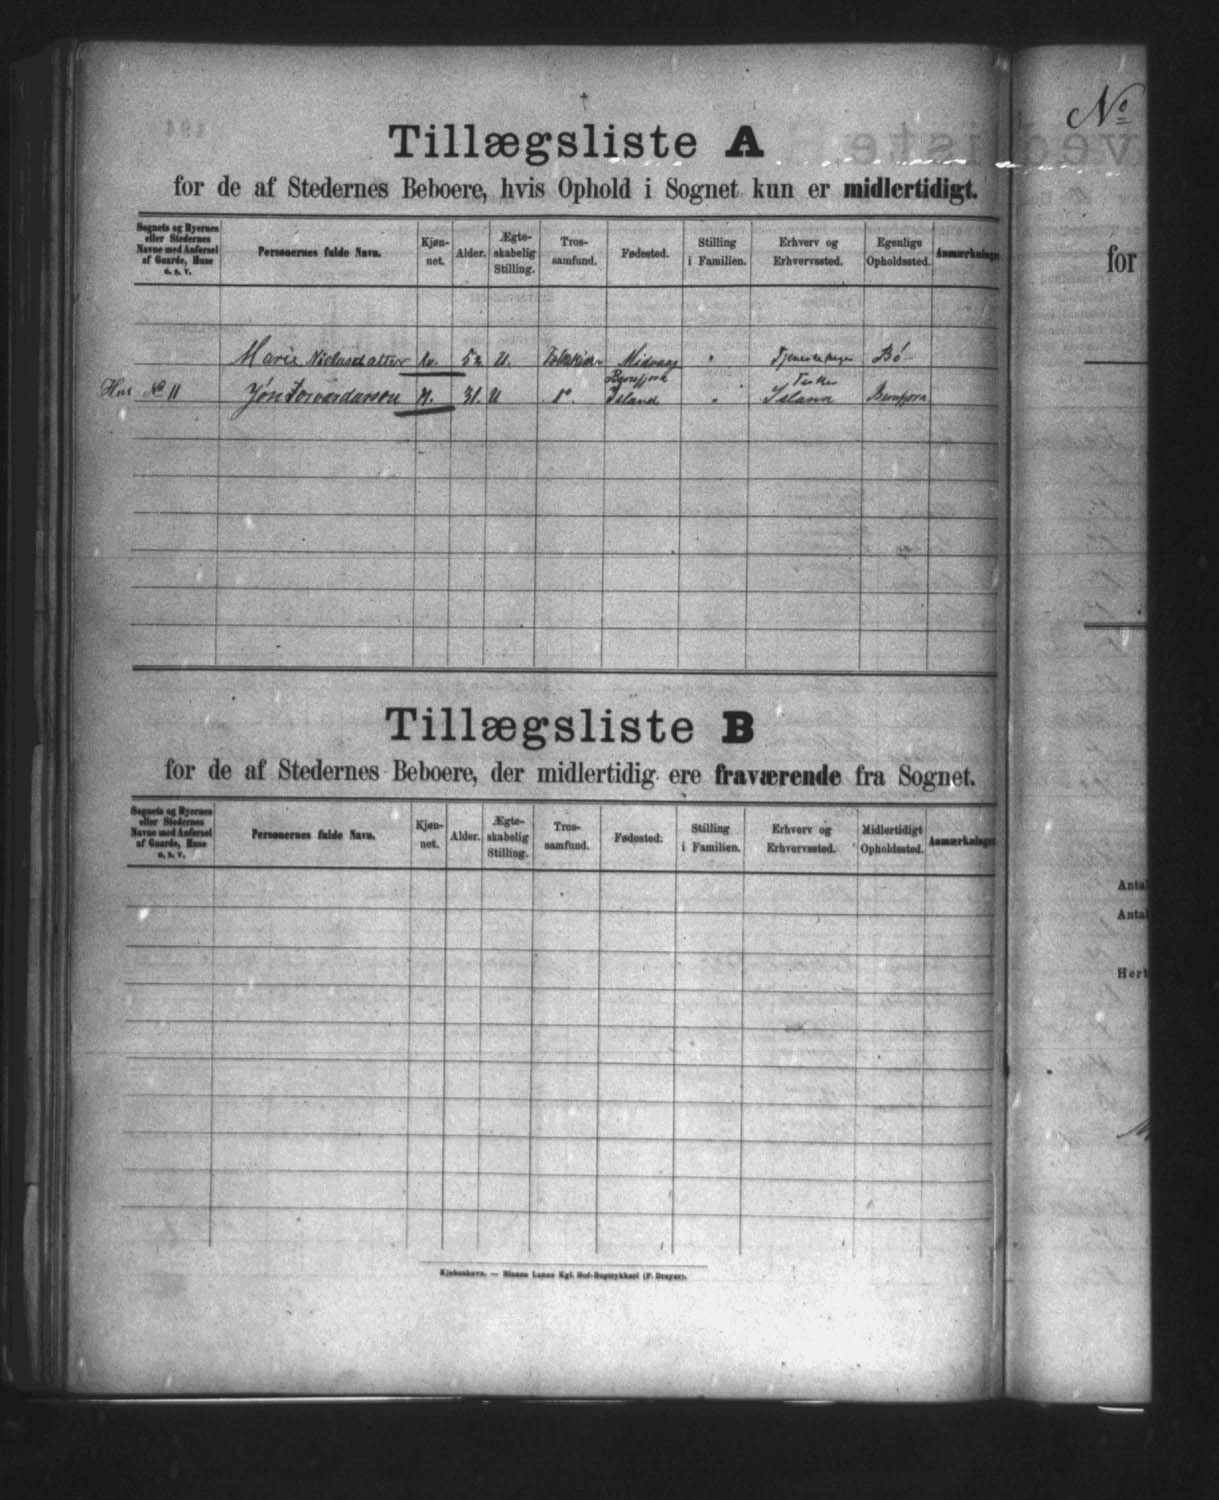 Tillægsliste A
for de af Stedernes Beboere, hvis Ophold i Sognet kun er midlertidigt.
Sognets og Byernes eller Stedernes Navne med Anførsel af Gaarde, Huse o. s. v. Personernes fulde Navn. Kjøn-net. Alder. Ægte-skabelig Stilling. Tros-samfund. Fødested. Stilling i Familien. Erhverv og Erhvervssted. Egenlige Opholdssted. Anmærkninger
Marie U. Midvaag " Bø
Hus No 11 Jøn M. 31. U do. Island " Island
Tillægsliste B
for de af Stedernes Beboere, der midlertidig ere fraværende fra Sognet.
Sognets og Byernes eller Stedernes Navne med Anførsel af Gaarde, Huse o. s. v. Personernes fulde Navn. Kjøn-net. Alder. Ægte-skabelig Stilling. Tros-samfund. Fødested. Stilling i Familien. Erhverv og Erhvervssted. Midlertidigt Opholdssted. Anmærkninger
Kjøbenhavn. — Bianco Lunos Kgl. Hof-Bogtrykkeri (F. Dreyer).
No
for
Antal
Antal
Hert